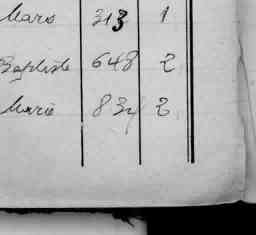 Mars 313 1
Baptiste 648 2
Marie 834 2